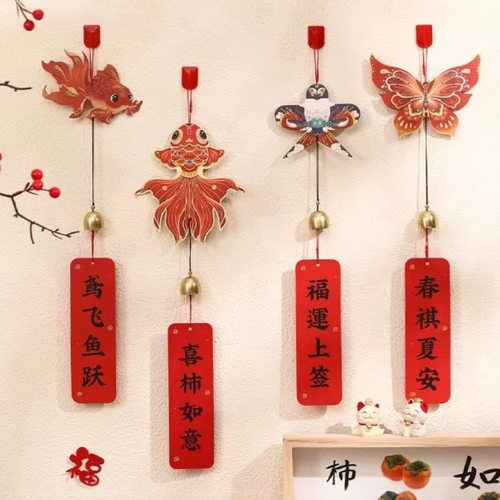 鳶飞鱼跃
喜柿如意
福運上签
春祺夏安
福
柿
如